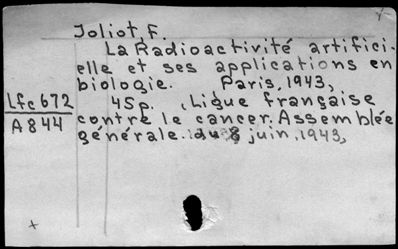 Joliot, F.
La Radioactivité artifici-
elle et ses applications en
biologie. Paris, 1943,
Lfc672
45p. (Ligue française
A844
contre le cancer. Assemblée
générale. du 8 juin, 1943,